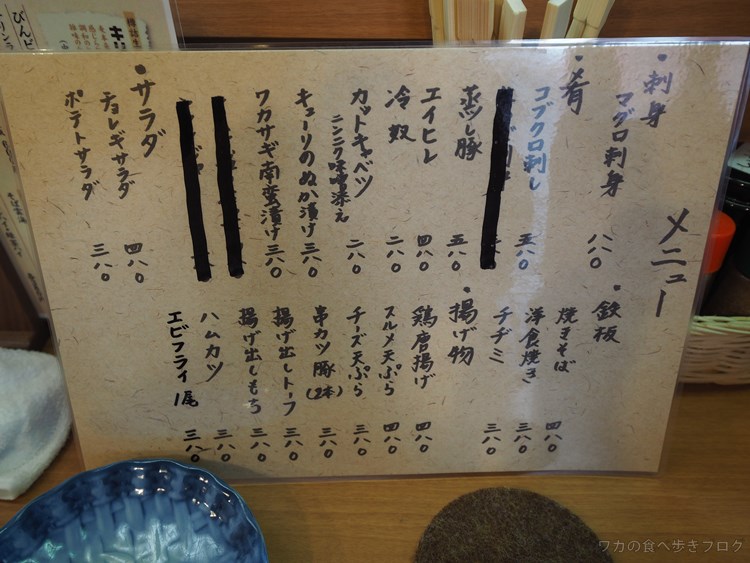 メニュー
・刺身
マグロ刺身 八八〇
・肴
コブクロ刺し 五八〇
蒸し豚 五八〇
エイヒレ 四八〇
冷奴 二八〇
カットキャベツ
ニンニク味噌添え 二八〇
キューリのぬか漬け 三八〇
ワカサギ南蛮漬け 三八〇
・サラダ
チョレギサラダ 四八〇
ポテトサラダ 三八〇
・鉄板
焼きそば 四八〇
洋食焼き 三八〇
チヂミ 三八〇
・揚げ物
鶏唐揚げ 四八〇
スルメ天ぷら 四八〇
チーズ天ぷら 三八〇
串カツ豚(2本) 三八〇
揚げ出しトーフ 三八〇
揚げ出しもち 三八〇
ハムカツ 三八〇
エビフライ1尾 三八〇
ワカの食べ歩きブログ